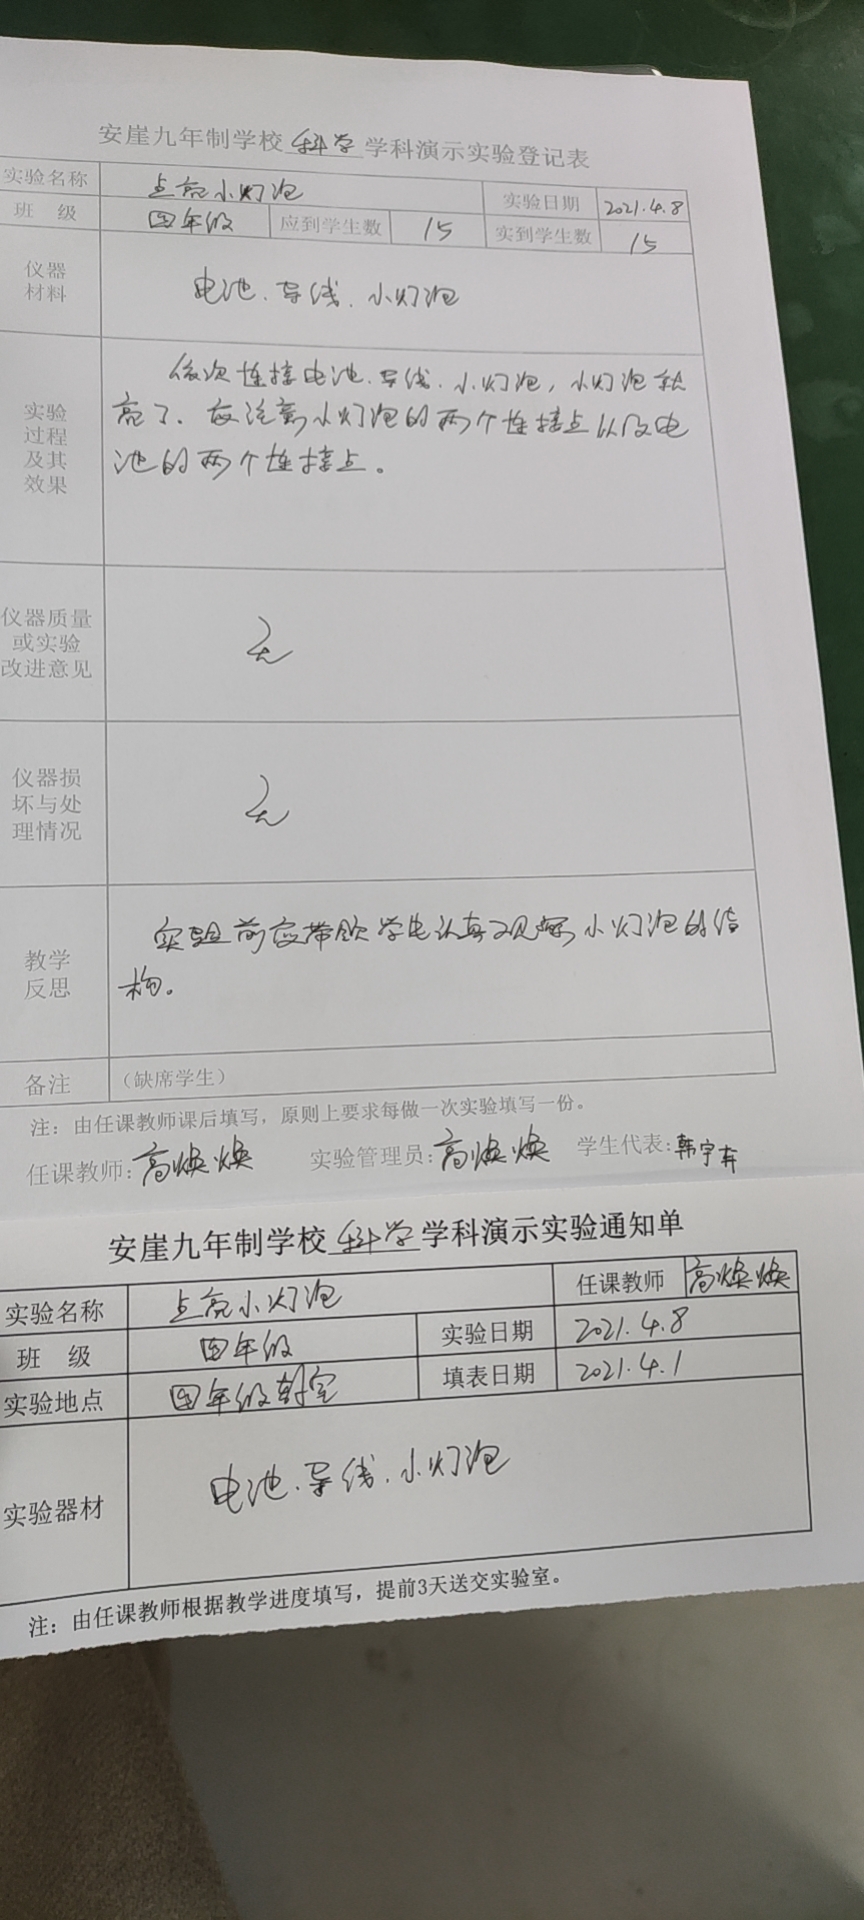 安崖九年制学校 科学 学科演示实验登记表
实验名称 点亮小灯泡 实验日期 2021.4.8
班 级 四年级 应到学生数 15 实到学生数 15
仪器
材料
电池、导线、小灯泡
实验
过程
及其
效果
依次连接电池、导线、小灯泡，小灯泡就
亮了。应注意小灯泡的两个连接点以及电
池的两个连接点。
仪器质量
或实验
改进意见
无
仪器损
坏与处
理情况
无
教学
反思
实验前应带领学生认真观察小灯泡的结
构。
备注 （缺席学生）
注：由任课教师课后填写，原则上要求每做一次实验填写一份。
任课教师：高焕焕 实验管理员：高焕焕 学生代表：韩宇
安崖九年制学校 科学 学科演示实验通知单
实验名称 点亮小灯泡 任课教师 高焕焕
班 级 四年级 实验日期 2021.4.8
实验地点 四年级教室 填表日期 2021.4.1
实验器材 电池、导线、小灯泡
注：由任课教师根据教学进度填写，提前3天送交实验室。